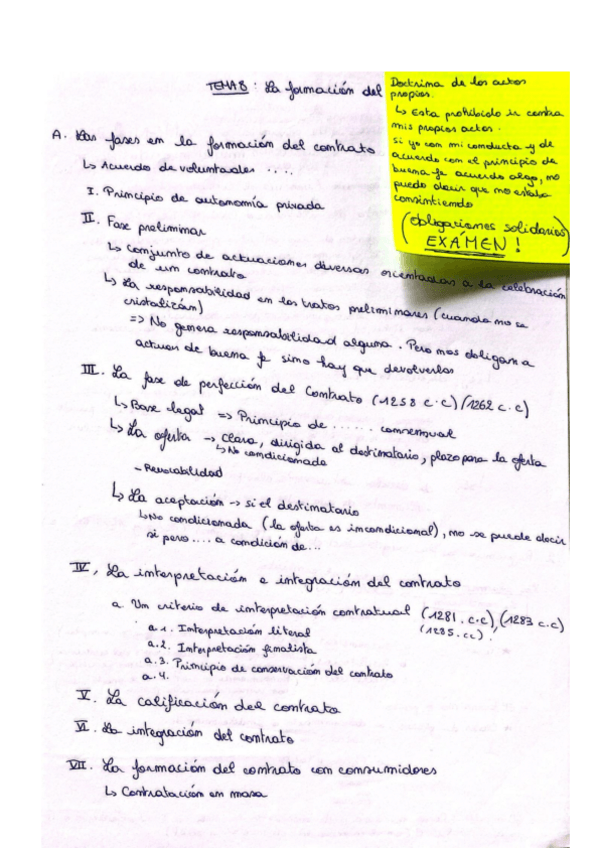 TEMA 8: La formación del
Doctrina de los actos
propios.
↳ Esta prohibido ir contra
mis propios actos.
si yo con mi conducta y de
acuerdo con el principio de
buena fe acuerdo algo, no
puedo decir que no estaba
consintiendo
(obligaciones solidarias)
EXÁMEN!
A. Las fases en la formación del contrato
↳ Acuerdo de voluntades ....
I. Principio de autonomía privada
II. Fase preliminar
↳ conjunto de actuaciones diversas orientadas a la celebración
de un contrato
↳ La responsabilidad en los tratos preliminares (cuando no se
cristalizan)
=> No genera responsabilidad alguna. Pero nos obligan a
actuar de buena fe sino hay que devolverlos
III. La fase de perfección del Contrato (1258 c.c)/(1262 c.c)
↳ Base legal => Principio de ...... consensual
↳ La oferta → Clara, dirigida al destinatario, plazo para la oferta
↳ No condicionada
- Revocabilidad
↳ La aceptación → si el destinatario
↳ No condicionada (la oferta es incondicional), no se puede decir
si pero .... a condición de...
IV, La interpretación e integración del contrato
a. Un criterio de interpretación contratual (1281. c.c), (1283 c.c)
(1285. cc)
a.1. Interpretación literal
a.2. Interpretación finalista
a.3. Principio de conservación del contrato
a.4.
V. La calificación del contrato
VI. La integración del contrato
VII. La formación del contrato con consumidores
↳ Contratación en masa